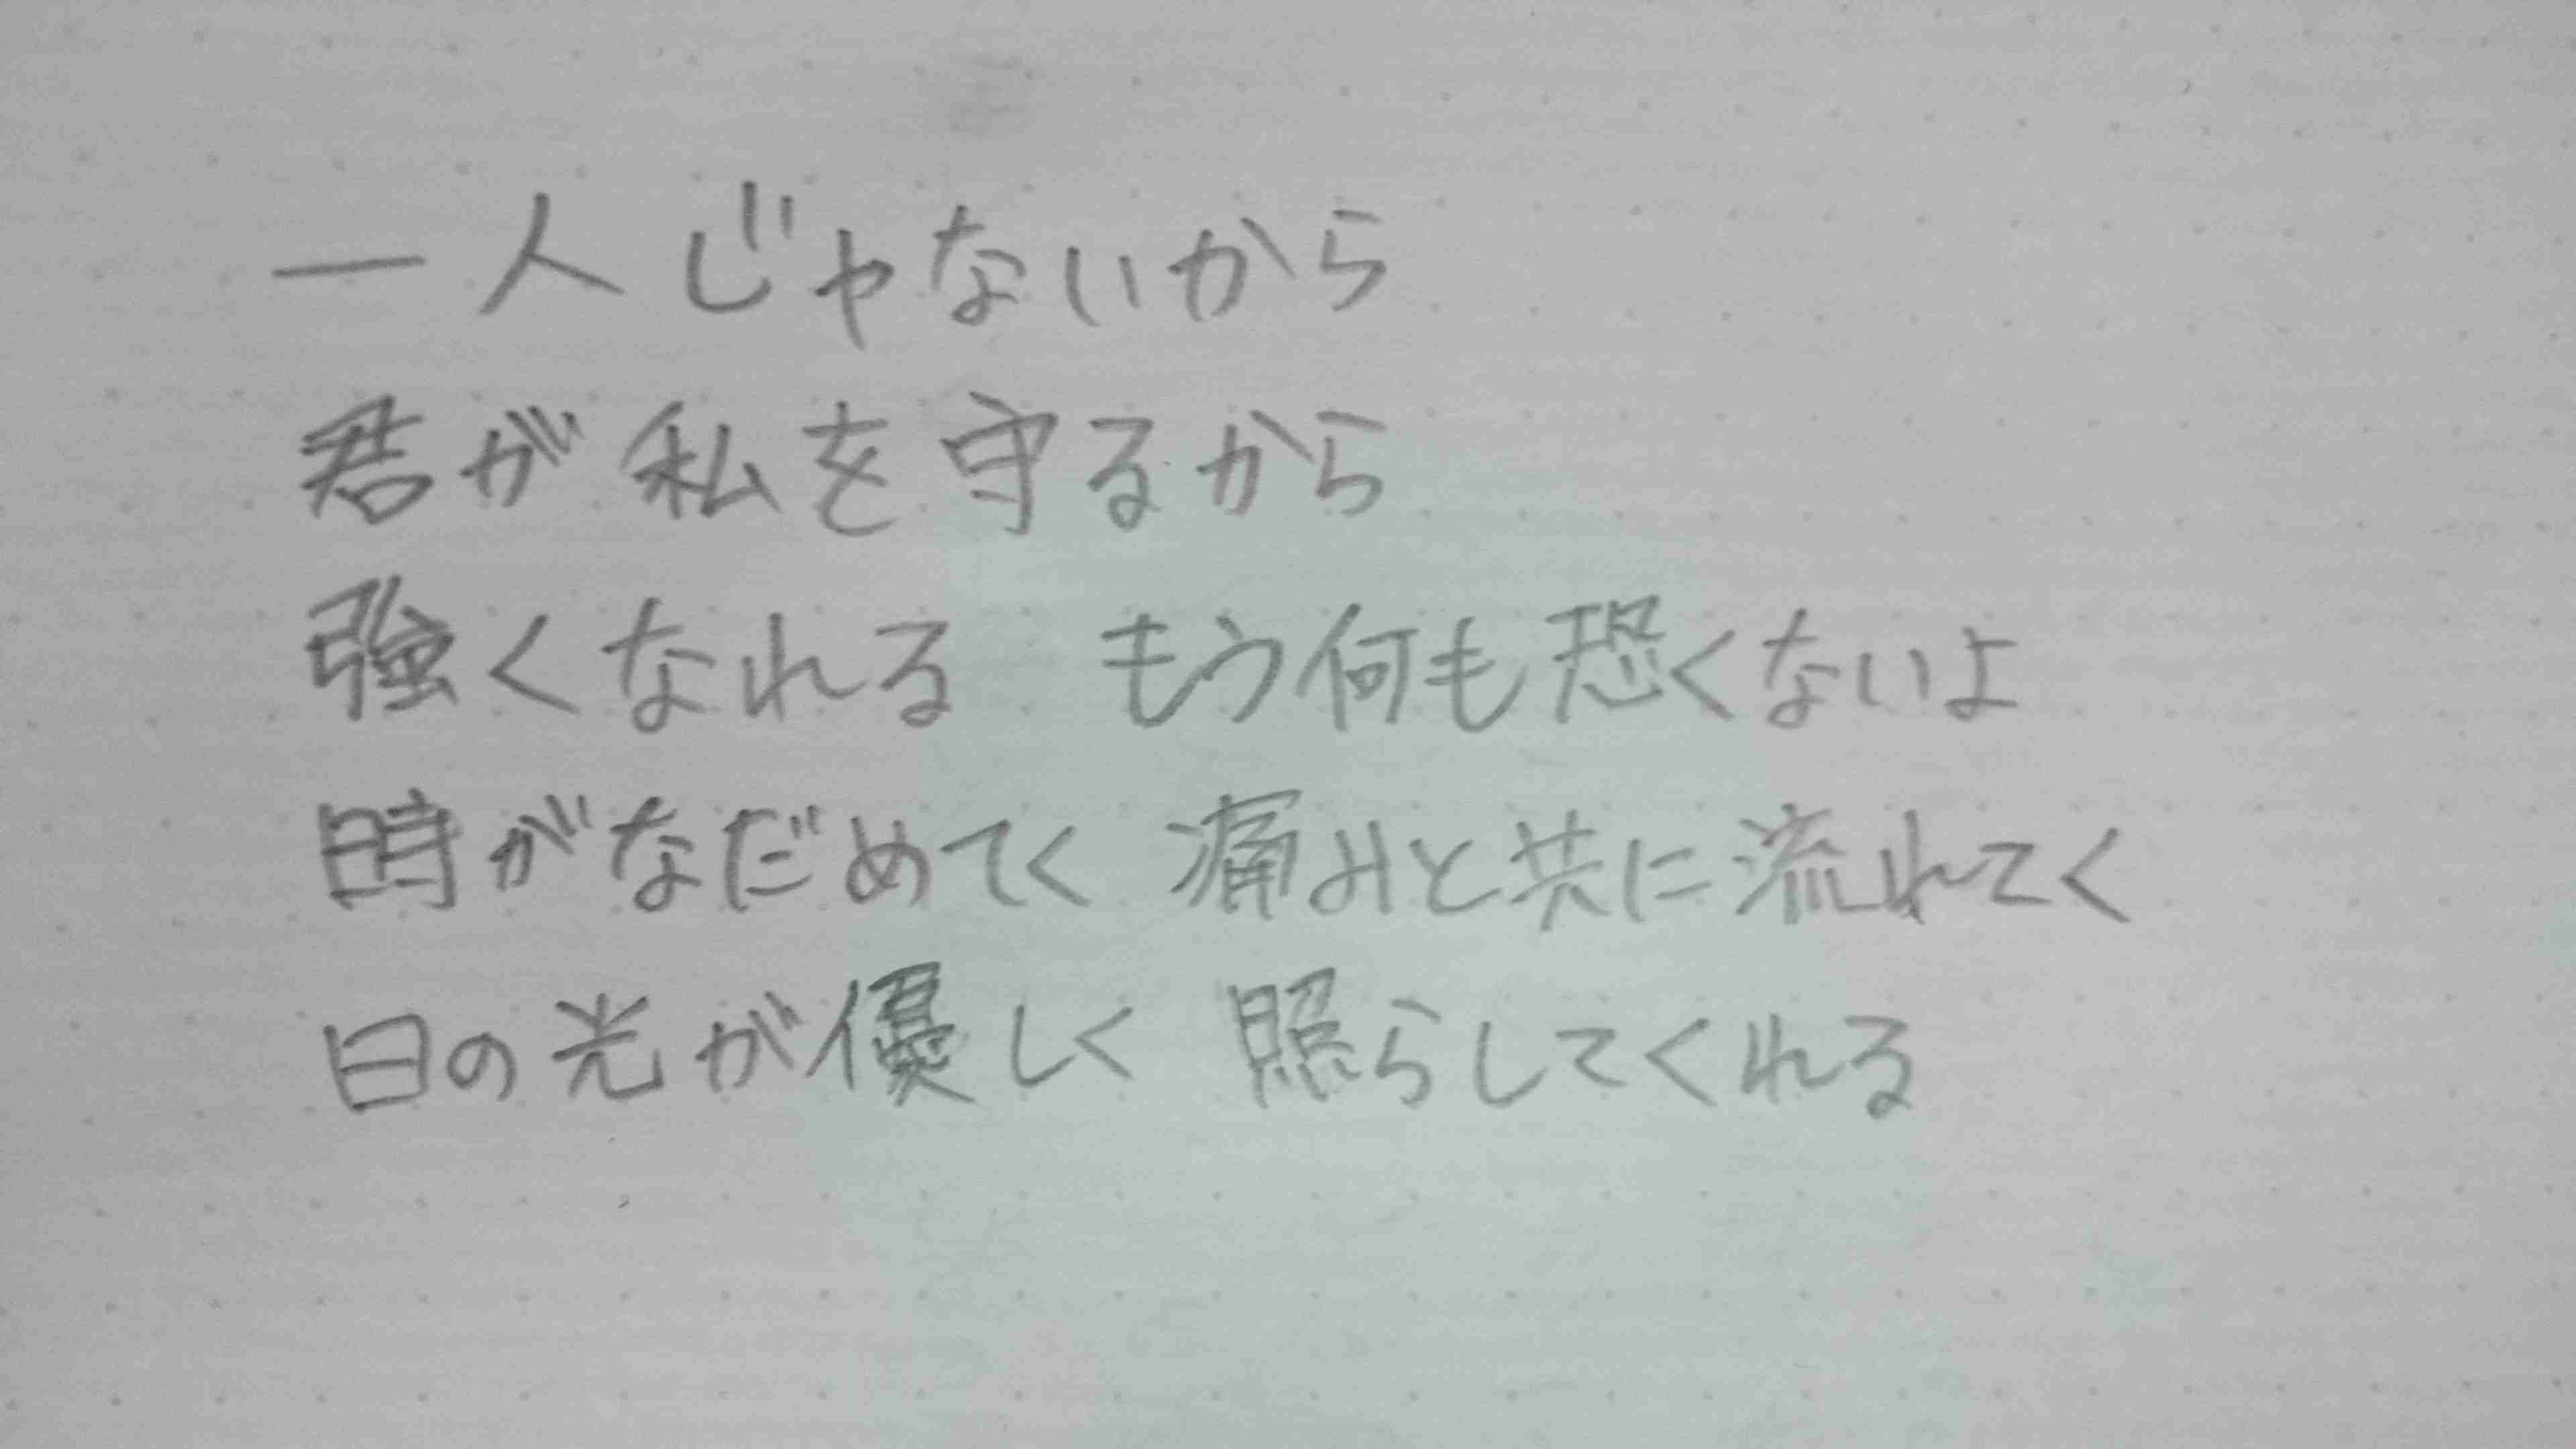 一人じゃないから
君が私を守るから
強くなれる もう何も恐くないよ
時がなだめてく 痛みと共に流れてく
日の光が優しく 照らしてくれる